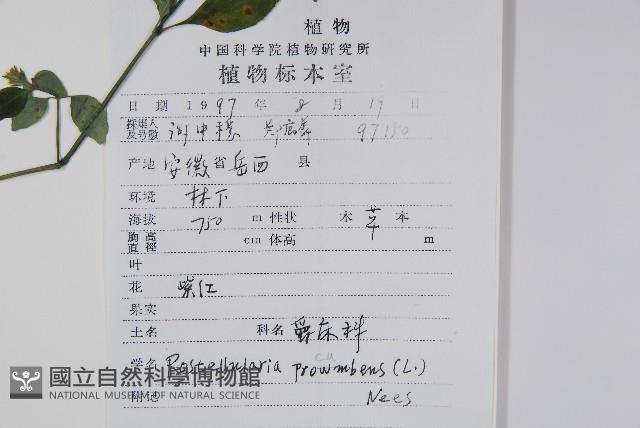 植物
中国科学院植物研究所
植物标本室
日期 1997 年 8 月 19 日
采集人及号数 97150
产地 安徽 省 岳西 县
环境 林下
海拔 750 m 性状 木 草 本
胸高直径 cm 体高 m
叶
花 紫红
果实
土名 科名 爵床科
学名 Rostellularia procumbens (L.)
附记 Nees
國立自然科學博物館
NATIONAL MUSEUM OF NATURAL SCIENCE